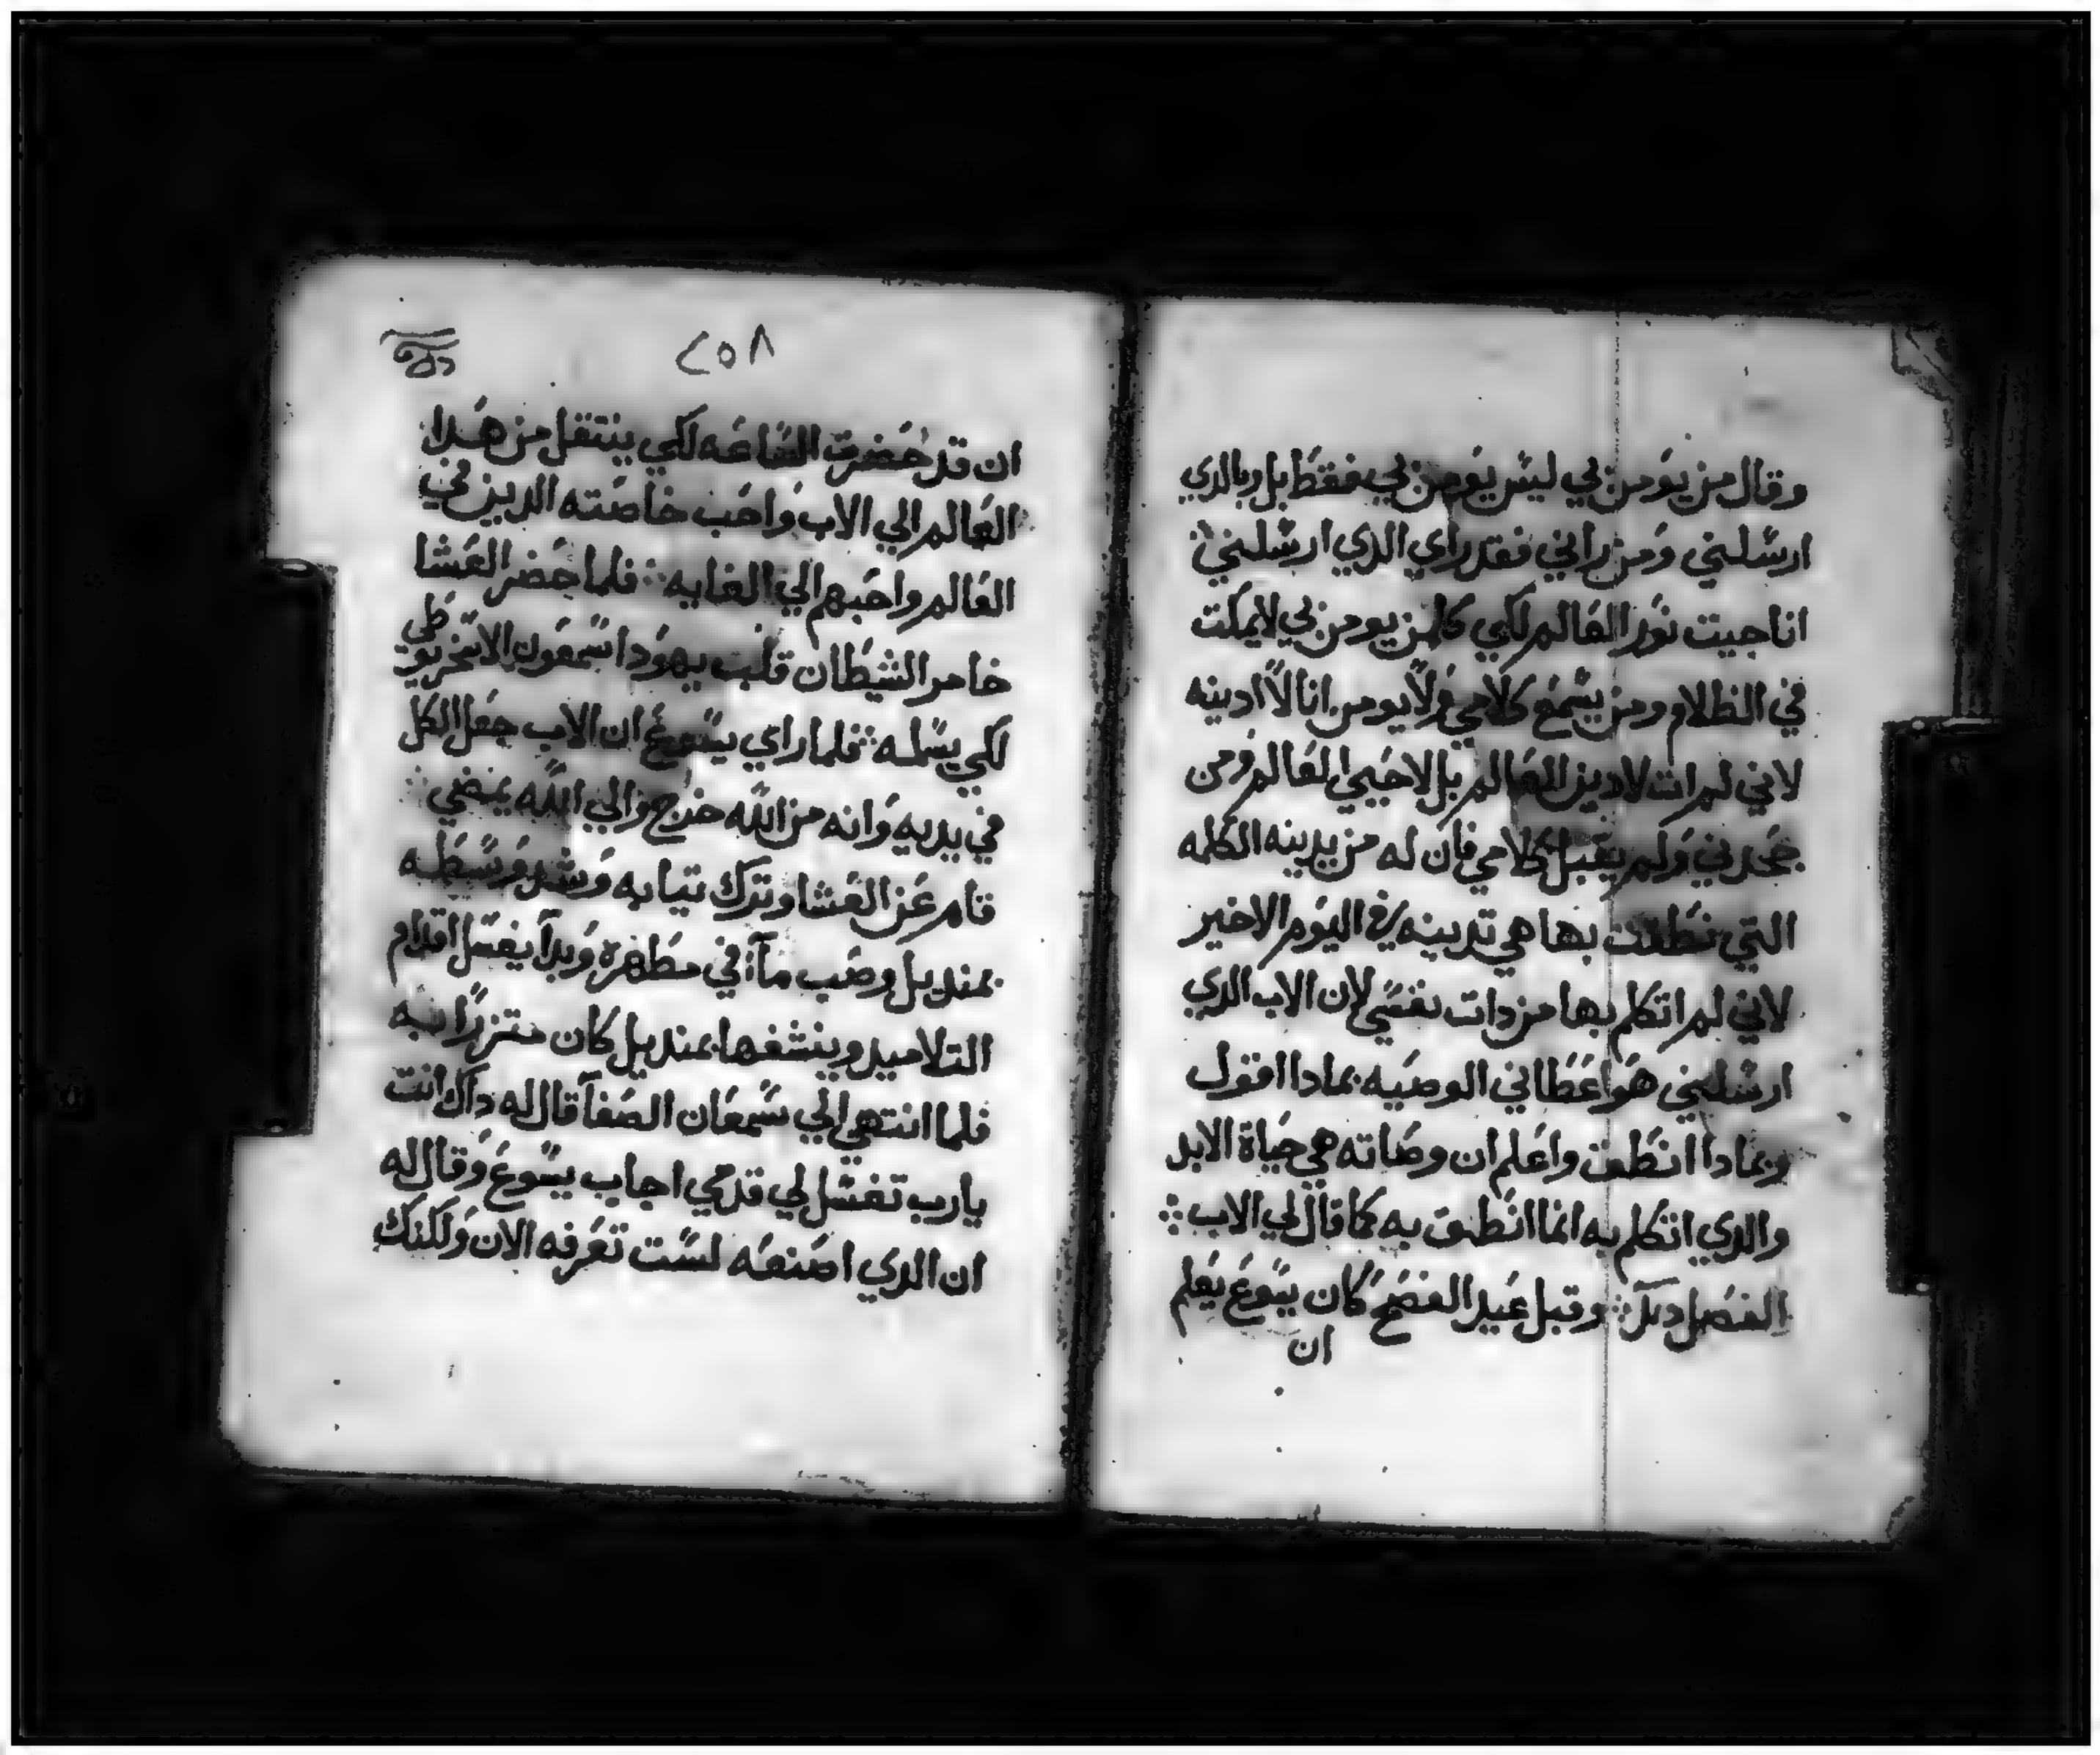 وقال من يومن بي ليس يومن بي فقط بل وبالدي
ارسلني ومن راني فقد راي الدي ارسلني
انا جيت نور العالم لكي كلمن يومن بي لا يمكت
في الظلام ومن يسمع كلامي ولا يومن انا لا ادينه
لاني لم ات لادين العالم بل لاحيي العالم ومن
جحدني ولم يقبل كلامي فان له من يدينه الكلمه
التي نطقت بها هي تدينه في اليوم الاخير
لاني لم اتكلم بها من دات نفسي لان الاب الدي
ارسلني هو اعطاني الوصيه بمادا اقول
وبمادا انطق واعلم ان وصاته هي حياة الابد
والدي اتكلم به انما انطق به كما قال لي الاب
الفصل وقبل عيد الفصح كان يسوع يعلم
ان
٢٥٨
ان قد حضرت الساعه لكي ينتقل من هدا
العالم الي الاب واحب خاصته الدين في
العالم واحبهم الي الغايه فلما حضر العشا
خامر الشيطان قلب يهودا سمعون الاسخريوطي
لكي يسلمه فلما راي يسوع ان الاب جعل الكل
في يديه وانه من الله خرج والي الله يمضي
قام عن العشا وترك تيابه وشد وسطه
بمنديل وصب مآ في مطهره وبدا يغسل اقدام
التلاميد وينشفها بمنديل كان متزرا به
فلما انتهي الي سمعان الصفا قال له داك انت
يارب تغسل لي قدمي اجاب يسوع وقال له
ان الدي اصنعه لست تعرفه الان ولكنك